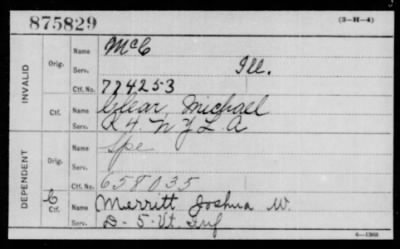 875829
(3-H-4)
INVALID
Orig.
Name McC
Serv. Ill.
Ctf. No. 774253
Ctf.
Name Clear, Michael
Serv. K 4. N Y L A
DEPENDENT
Orig.
Name Spe
Serv.
Ctf. No. 658035
C
Ctf.
Name Merritt Joshua W.
Serv. D-5-Vt. Inf
6-1366